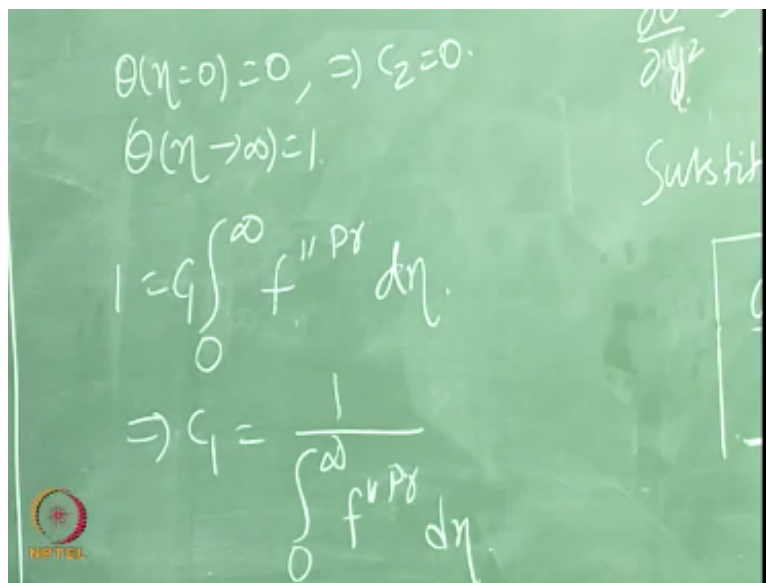 θ(η=0)=0, ⇒ C₂=0.
θ(η→∞)=1.
1 = C₁ ∫₀^∞ f''^Pr dη.
⇒ C₁ = 1 / ∫₀^∞ f''^Pr dη.
∂y²
Substit
NPTEL